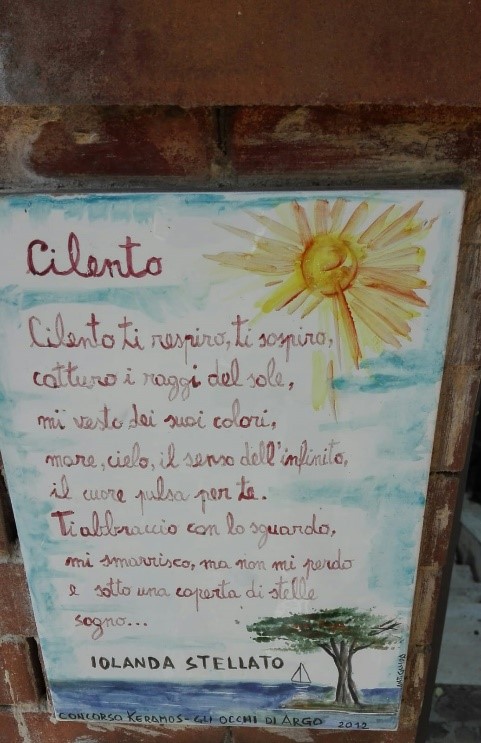 Cilento
Cilento ti respiro, ti sospiro,
catturo i raggi del sole,
mi vesto dei suoi colori,
mare, cielo, il senso dell'infinito,
il cuore pulsa per te.
Ti abbraccio con lo sguardo,
mi smarrisco, ma non mi perdo
e sotto una coperta di stelle
sogno...
IOLANDA STELLATO
CONCORSO KERAMOS - GLI OCCHI DI ARGO 2012